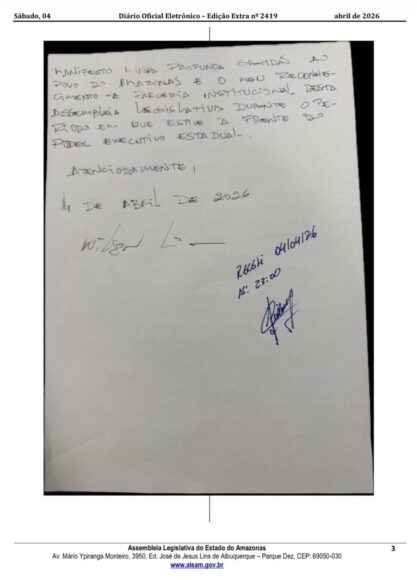 Sábado, 04 Diário Oficial Eletrônico – Edição Extra nº 2419 abril de 2026
MANIFESTO MINHA PROFUNDA GRATIDÃO AO
POVO DO AMAZONAS E O MEU RECONHE-
CIMENTO A PARCERIA INSTITUCIONAL DESTA
ASSEMBLEIA LEGISLATIVA DURANTE O PE-
RÍODO EM QUE ESTIVE À FRENTE DO
PODER EXECUTIVO ESTADUAL.
ATENCIOSAMENTE,
4 DE ABRIL DE 2026
Wilson Li
RECEBI 04/04/26
ÀS: 23:00
Assembleia Legislativa do Estado do Amazonas
Av. Mário Ypiranga Monteiro, 3950, Ed. José de Jesus Lins de Albuquerque – Parque Dez, CEP: 69050-030
www.aleam.gov.br
3